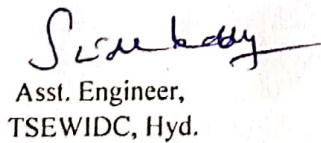 Asst. Engineer,
TSEWIDC, Hyd.